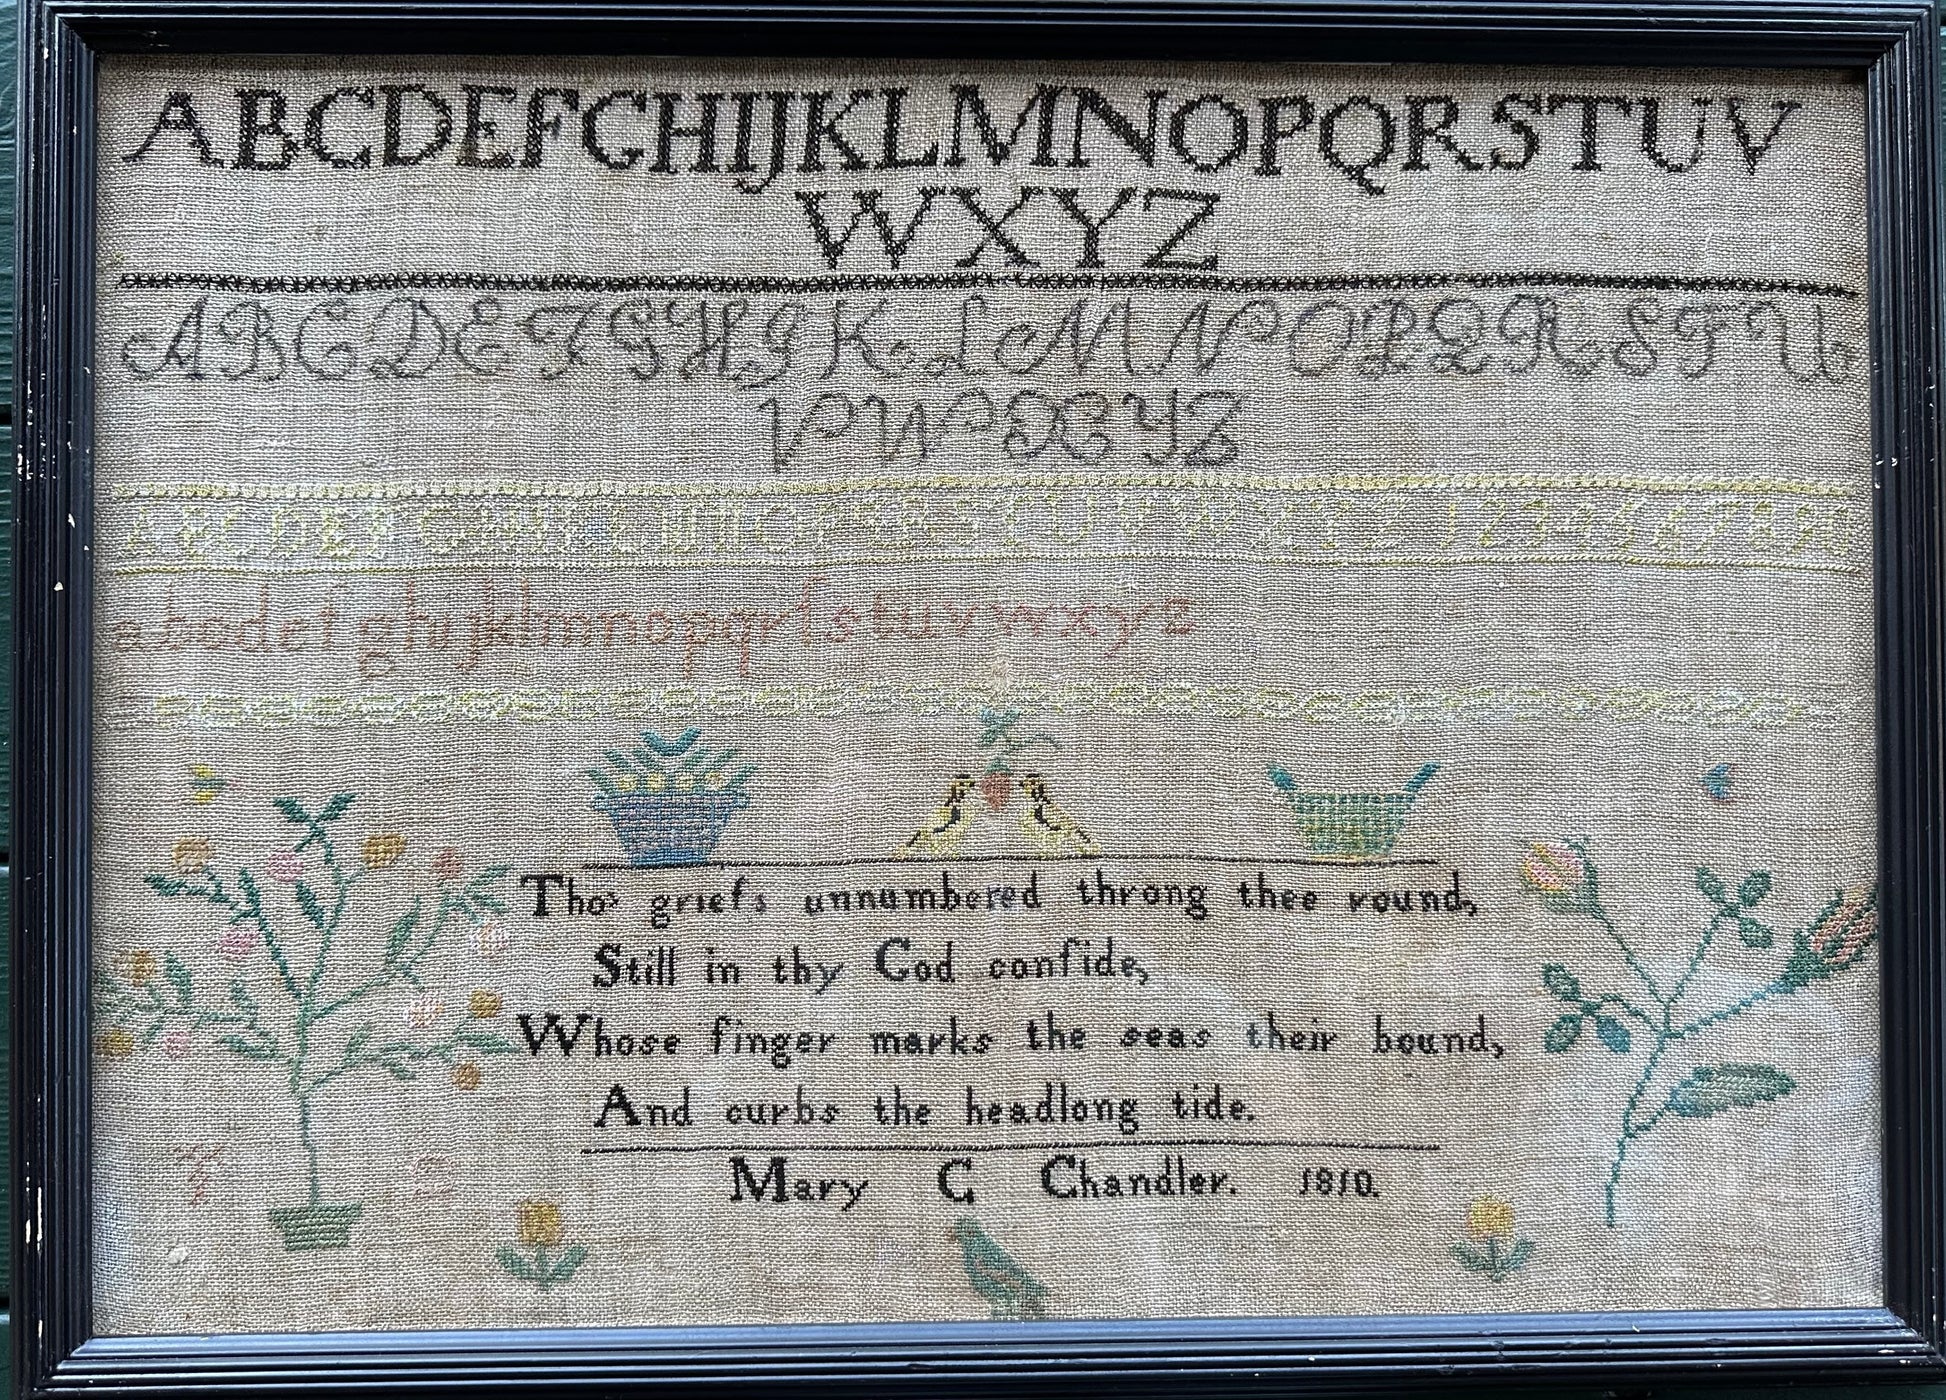 ABCDEFGHIJKLMNOPQRSTUV
WXYZ
ABCDEFGHJKLMNOPQRSTU
VWXYZ
ABCDEFGHIKLMNOPQRSTUVWXYZ 12345678910
abcdefghijklmnopqrſstuvwxyz
Tho' griefs unnumbered throng thee round,
Still in thy God confide,
Whose finger marks the seas their bound,
And curbs the headlong tide.
Mary C Chandler. 1810.